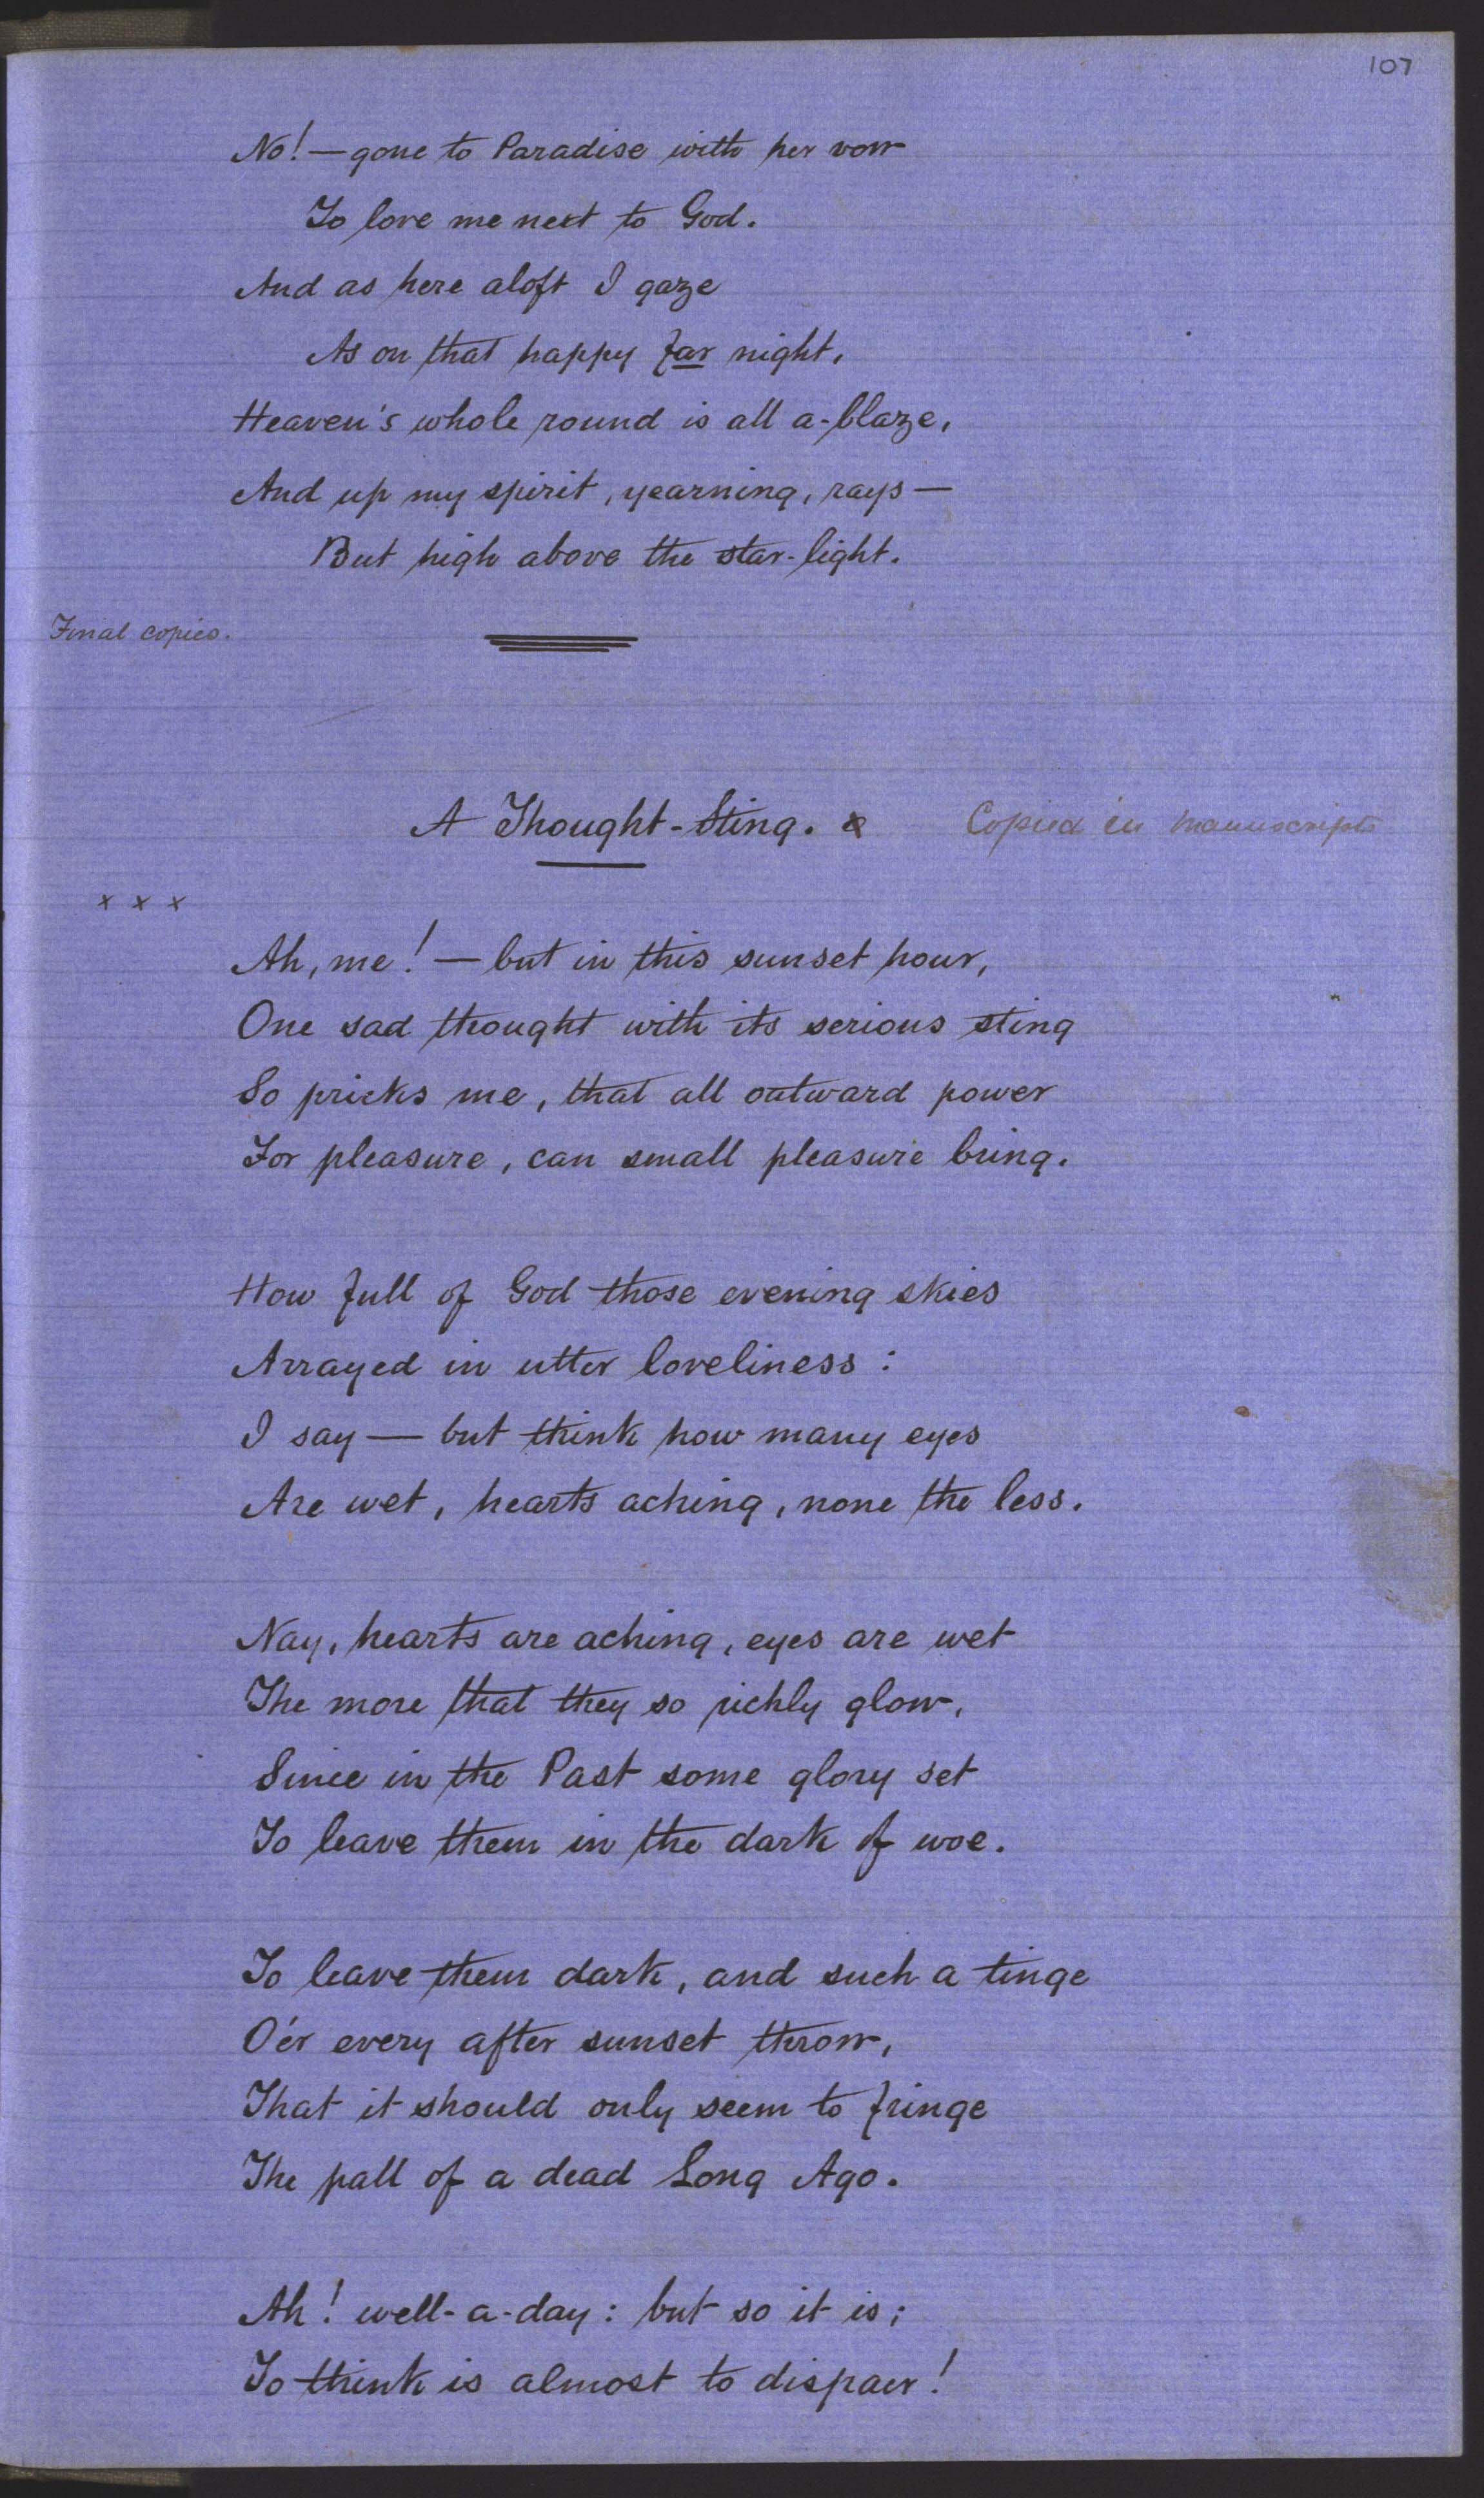 107
No!—gone to Paradise with her vow
To love me next to God.
And as here aloft I gaze
As on that happy far night,
Heaven's whole round is all a-blaze,
And up my spirit, yearning, rays—
But high above the star-light.
Final copies.
A Thought-Sting. x Copied in manuscript
x x x
Ah, me!—but in this sunset hour,
One sad thought with its serious sting
So pricks me, that all outward power
For pleasure, can small pleasure bring.
How full of God those evening skies
Arrayed in utter loveliness:
I say—but think how many eyes
Are wet, hearts aching, none the less.
Nay, hearts are aching, eyes are wet
The more that they so richly glow,
Since in the Past some glory set
To leave them in the dark of woe.
To leave them dark, and such a tinge
O'er every after sunset throw,
That it should only seem to fringe
The pall of a dead Long Ago.
Ah! well-a-day: but so it is;
To think is almost to dispair!